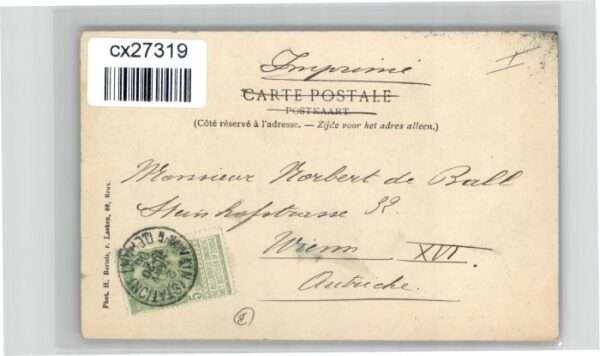 cx27319
Imprimé
CARTE POSTALE
POSTKAART
(Côté réservé à l'adresse. — Zijde voor het adres alleen.)
Monsieur Norbert de Ball
Steinhofstrasse 32
Wien XVI
Autriche
Phot. H. Bertels, r. Laeken, 69, Brux.